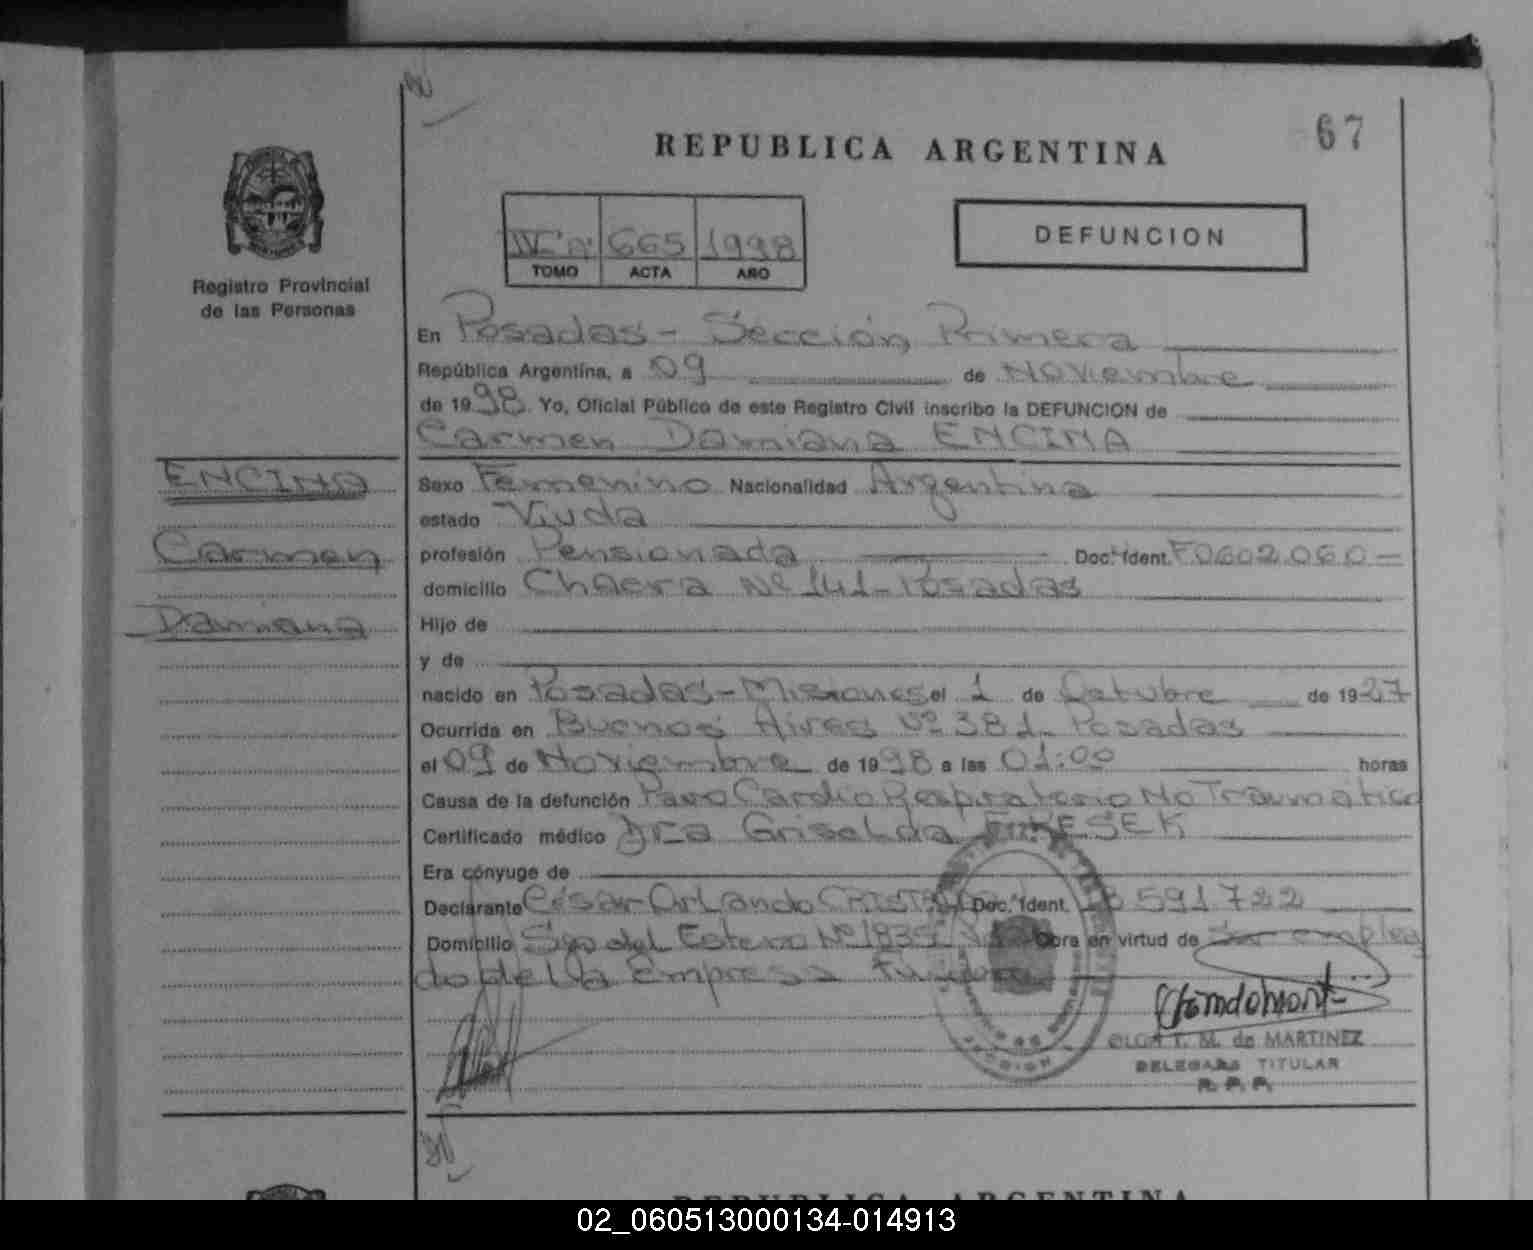 67
REPUBLICA ARGENTINA
IVº "A" 665 1998
TOMO ACTA AÑO
DEFUNCION
Registro Provincial
de las Personas
En Posadas - Sección Primera
República Argentina, a 09 de Noviembre
de 1998. Yo, Oficial Público de este Registro Civil inscribo la DEFUNCION de
Carmen Damiana ENCINA
ENCINA
Carmen
Damiana
Sexo Femenino Nacionalidad Argentina
estado Viuda
profesión Pensionada Doc. Ident. F0602.060-
domicilio Chacra Nº 141-Posadas
Hijo de
y de
nacido en Posadas-Misiones el 1 de Octubre de 1927
Ocurrida en Buenos Aires Nº 381- Posadas
el 09 de Noviembre de 1998 a las 01:00 horas
Causa de la defunción Paro Cardio Respiratorio No Traumático
Certificado médico Dra Griselda
Era cónyuge de
Declarante César Orlando Doc. Ident. 591.722
Domicilio Sgo del Estero Nº Obra en virtud de Ser emplea
do de la Empresa
OLGA T. M. de MARTINEZ
DELEGADA TITULAR
R. P. P.
REPUBLICA ARGENTINA
02_060513000134-014913